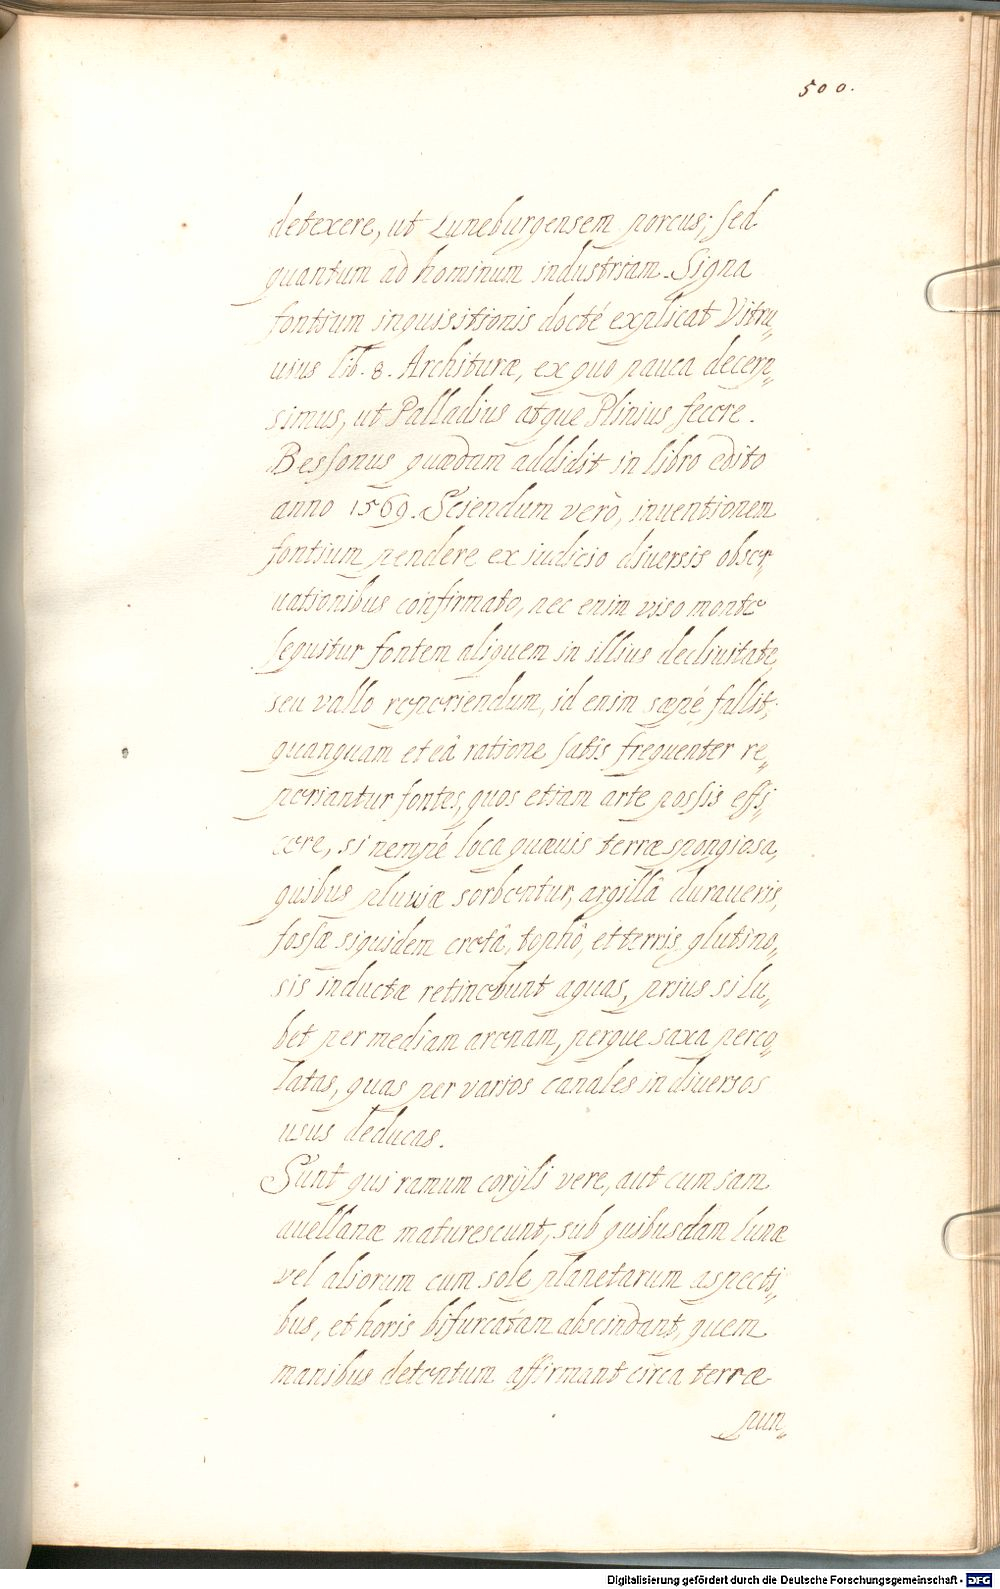 500.
detexere, ut Luneburgensem porcus; sed
quantum ad hominum industriam. Signa
fontium inquisitionis docté explicat Vitru„
uius lib. 8. Archituræ, ex quo pauca decerp„
simus, ut Palladius atque Plinius fecere.
Bessonus quædam addidit in libro edito
anno 1569. Sciendum verò, inuentionem
fontium pendere ex iudicio diuersis obser„
uationibus confirmato, nec enim viso monte
sequitur fontem aliquem in illius decliuitate
seu vallo reperiendum, id enim sæpé fallit;
quanquam et eâ ratione satis frequenter re„
periantur fontes, quos etiam arte possis effi„
cere, si nempé loca quæuis terræ spongiosa,
quibus pluuiæ sorbentur, argillâ duraueris,
fossæ siquidem cretâ, tophô, et terris glutino„
sis inductæ retinebunt aquas, prius si lu„
bet per mediam arenam, perque saxa perco„
latas, quas per varios canales in diuersos
usus deducas.
Sunt qui ramum corÿli vere, aut cum iam
auellanæ maturescunt, sub quibusdam lunæ
vel aliorum cum sole planetarum aspecti„
bus, et horis bifurcatam abscindant, quem
manibus detentum affirmant circa terræ
pun„
Digitalisierung gefördert durch die Deutsche Forschungsgemeinschaft - DFG